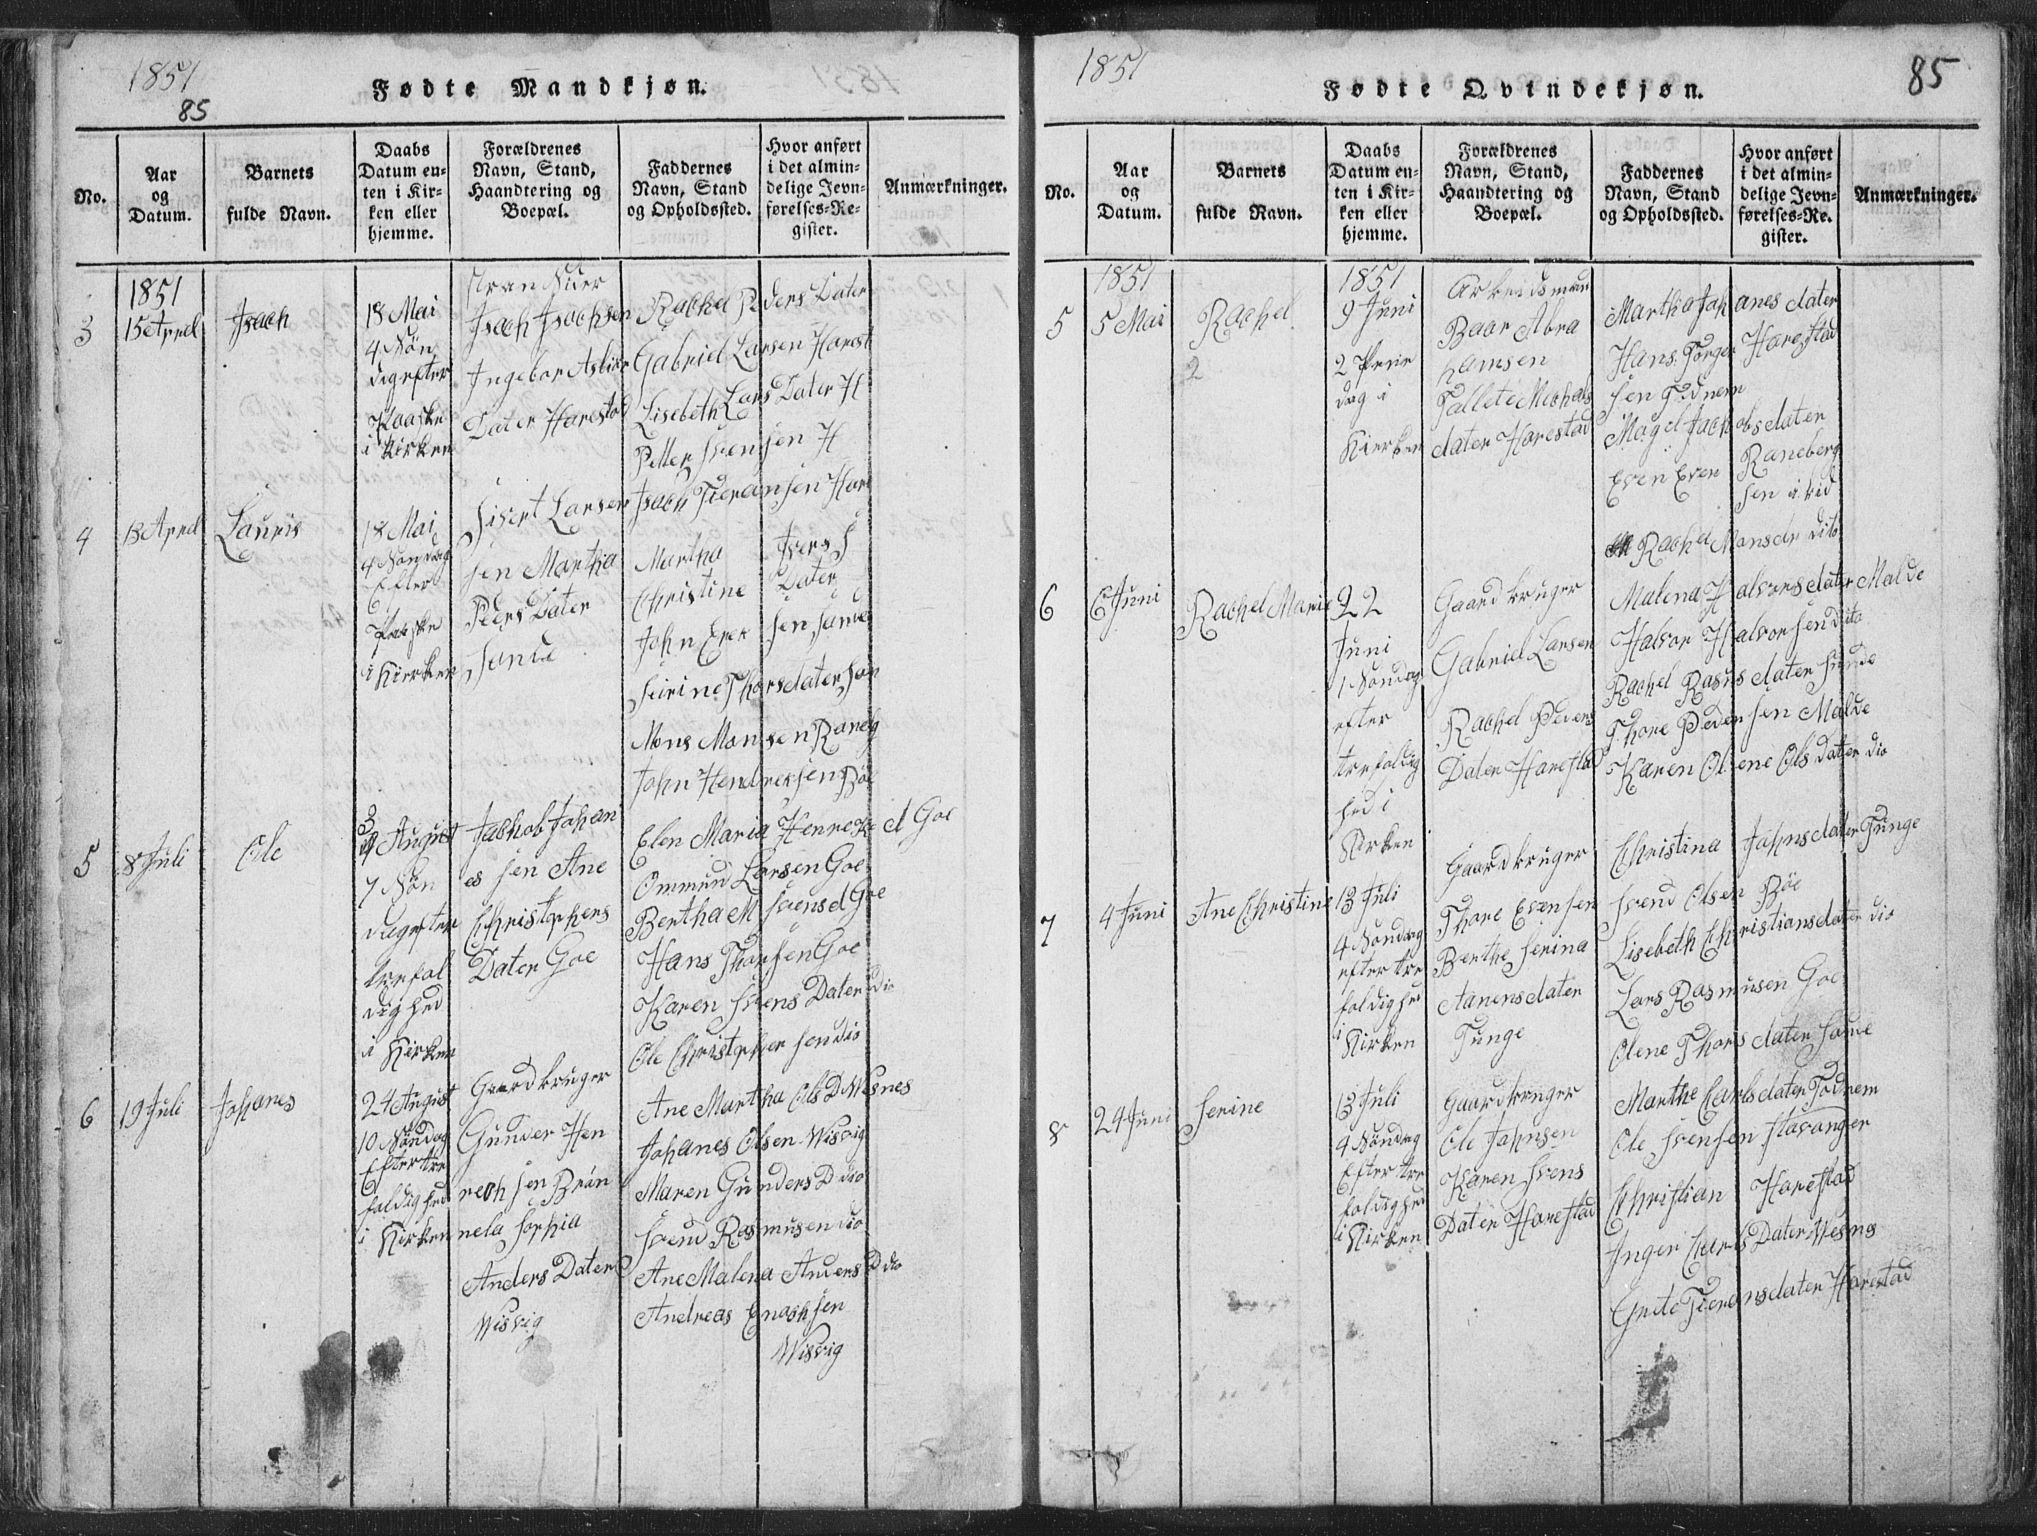 1851
85
Fødte Mandkjøn.
No.
Aar
og
Datum.
Barnets
fulde Navn.
Daabs
Datum en-
ten i Kir-
ken eller
hjemme.
Forældrenes
Navn, Stand,
Haandtering og
Boepæl.
Faddernes
Navn, Stand
og Opholdssted.
Hvor anført
i det almin-
delige Jevn-
førelses-Re-
gister.
Anmærkninger.
1851
3
15 April
Isach
18 Mai
4 Søn
dag efter
Paaske
i Kirken
Isach Isachsen
Ingebor
Dater Harestad
Rachel Peders Dater
Gabriel Larsen Harest
Lisebeth Lars Dater H
Peller Svensen H
Isach Tieransen Hare
4
13 April
Lauris
18 Mai
4 Søndag
Efter
Paaske
i Kierken
Sivert Larsen
sen Martha
Peers Dater
Sande
Martha Ivers S
Christine Dater
John Erek sen Sande
Seirine Thorsdater San
Mons Monsen Raneb
John Hendreksen Böe
5
8 Juli
Ole
3 August
7 Søn
dag efter
trefol
dighed
i Kirken
Jachob Johan
es sen Ane
Christophers
Dater Goe
Elen Maria Henrek d Goe
Ommun Larsen Goe
Bertha M Svens d Goe
Hans Thorsen Goe
Karen Svens Dater dio
Ole Christopher sen dio
6
19 Juli
Johanes
24 August
10 Søndag
Efter tre
foldighed
i Kirken
Gaardbruger
Gunder Hen
rech sen Brön
nela Sophia
Anders Dater
Wisvig
Ane Martha Ols D Wesnes
Johanes Olsen Wisvig
Maren Gunders D dio
Svend Rasmusen dio
Ane Malena Anders D dio
Andreas Enochsen
Wisvig
1851
85
Fødte Qvindekjøn.
No.
Aar
og
Datum.
Barnets
fulde Navn.
Daabs
Datum en-
ten i Kir-
ken eller
hjemme.
Forældrenes
Navn, Stand,
Haandtering og
Boepæl.
Faddernes
Navn, Stand
og Opholdssted.
Hvor anført
i det almin-
delige Jevn-
førelses-Re-
gister.
Anmærkninger.
1851
1851
5
5 Mai
Rachel
2
9 Juni
2 Peine
dag i
Kierken
Arbeidsman
Baar Abra
hamsen
Tallete Michals
dater Harestad
Martha Johanes dater
Hans Torger Harestad
sen Todnem
Magel Jachobsdater
Even Even Raneberg
Rachel Monsdr dito
6
6 Juni
Rachel Marie
22
Juni
1 Søndag
efter
trefoldig
hed i
Kirken
Gaardbruger
Gabriel Larsen
Rachel Peders
Dater Harestad
Malena Halvorsdater Malde
Halvor Halvorsen dito
Rachel Rasmus dater Sunde
Thore Pedersen Malde
Karen Olene Ols dater dio
7
4 Juni
Ane Christine
13 Juli
4 Søndag
efter tre
foldighed
i
Kirken
Gaardbruger
Thore Evensen
Berthe Serina
Aanensdater
Tunge
Christina Johnsdater Tunge
Svend Olsen Böe
Lisebeth Christiansdater dio
Lars Rasmusen Goe
Olene Thors dater Sande
8
24 Juni
Serine
13 Juli
4 Søndag
Efter tre
foldighed
i Kirken
Gaardbruger
Ole Johnsen
Karen Svens
Dater Harestad
Marthe Carls dater Todnem
Ole Svensen Stavanger
Christian Harestad
Inger Carls Dater Wesnes
Grete Tieransdater Harestad